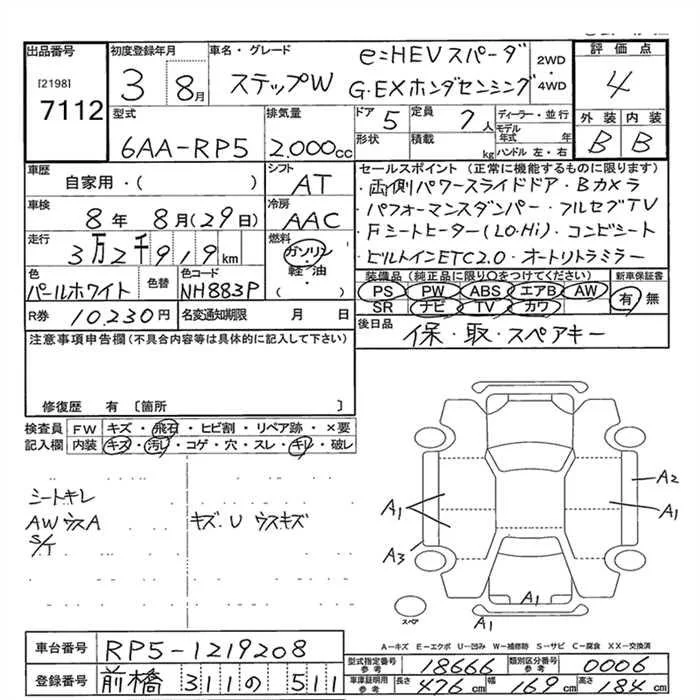 出品番号
[2198]
7112
初度登録年月
3 8月
車名・グレード
ステップW
e:HEVスパーダ
G.EXホンダセンシング
2WD・4WD
評価点
4
外装 内装
B B
型式
6AA-RP5
排気量
2.000cc
ドア 5
形状
定員 7人
積載 kg
ディーラー・並行
モデル年式 年
ハンドル 左・右
車歴
自家用・( )
シフト
AT
車検
8年 8月(29日)
冷房
AAC
走行
3万2千919km
燃料
ガソリン・軽油
( )
色
パールホワイト
色替
色コード
NH883P
R券 10.230円
名変通知期限 月 日
セールスポイント(正常に機能するものに限ります)
・両側パワースライドドア・Bカメラ
・パフォーマンスダンパー・フルセグTV
・Fシートヒーター(LO.Hi)・コンビシート
・ビルトインETC2.0・オートリトラミラー
装備品(純正品に限り○をつけてください)
PS PW ABS エアB AW
SR ナビ TV カワ
新車保証書
有・無
後日品
保・取・スペアキー
注意事項申告欄(不具合内容等は具体的に記入して下さい)
修復歴 有〔箇所 〕
検査員記入欄
FW キズ・飛石・ヒビ割・リペア跡・×要
内装 キズ・汚レ・コゲ・穴・スレ・キレ・破レ
シートキレ
AWウスA
S/T
キズ. U ウスキズ
A1
A3
A2
A1
A1
A1
スペア
A－キズ E－エクボ U－凹み W－補修跡 S－サビ C－腐食 XX－交換済
車台番号
RP5-1219208
登録番号
前橋 311の511
型式指定番号 参考
18666
類別区分番号 参考
0006
車庫証明用 参考
長さ 476cm 幅 169cm 高さ 184cm